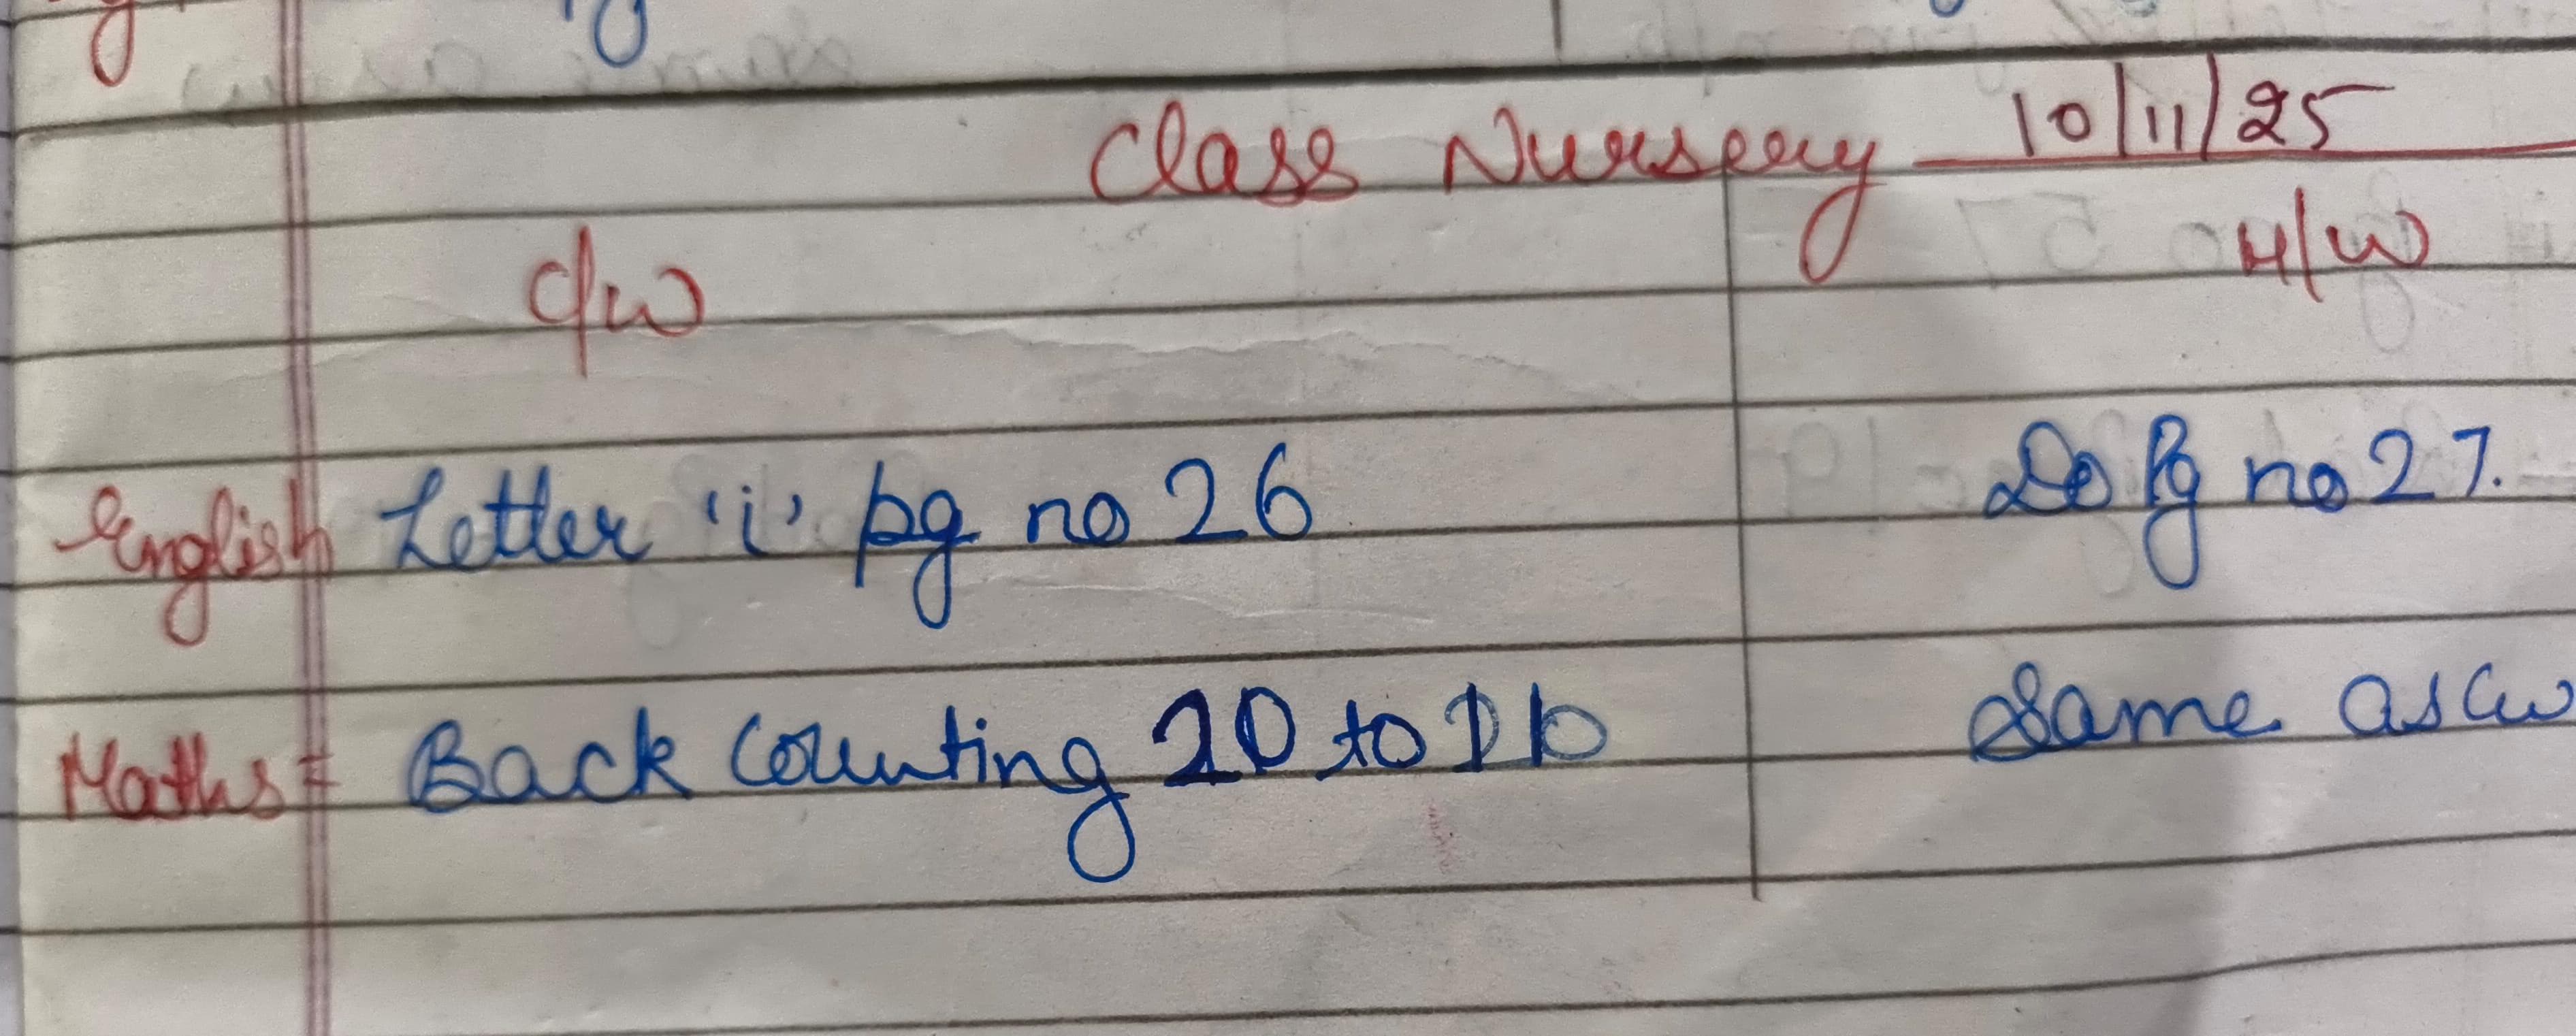 Class Nursery 10/11/25
C/W H/W
English Letter 'i' pg no 26 Do Pg no 27.
Maths = Back Counting 20 to 10 Same as Cw